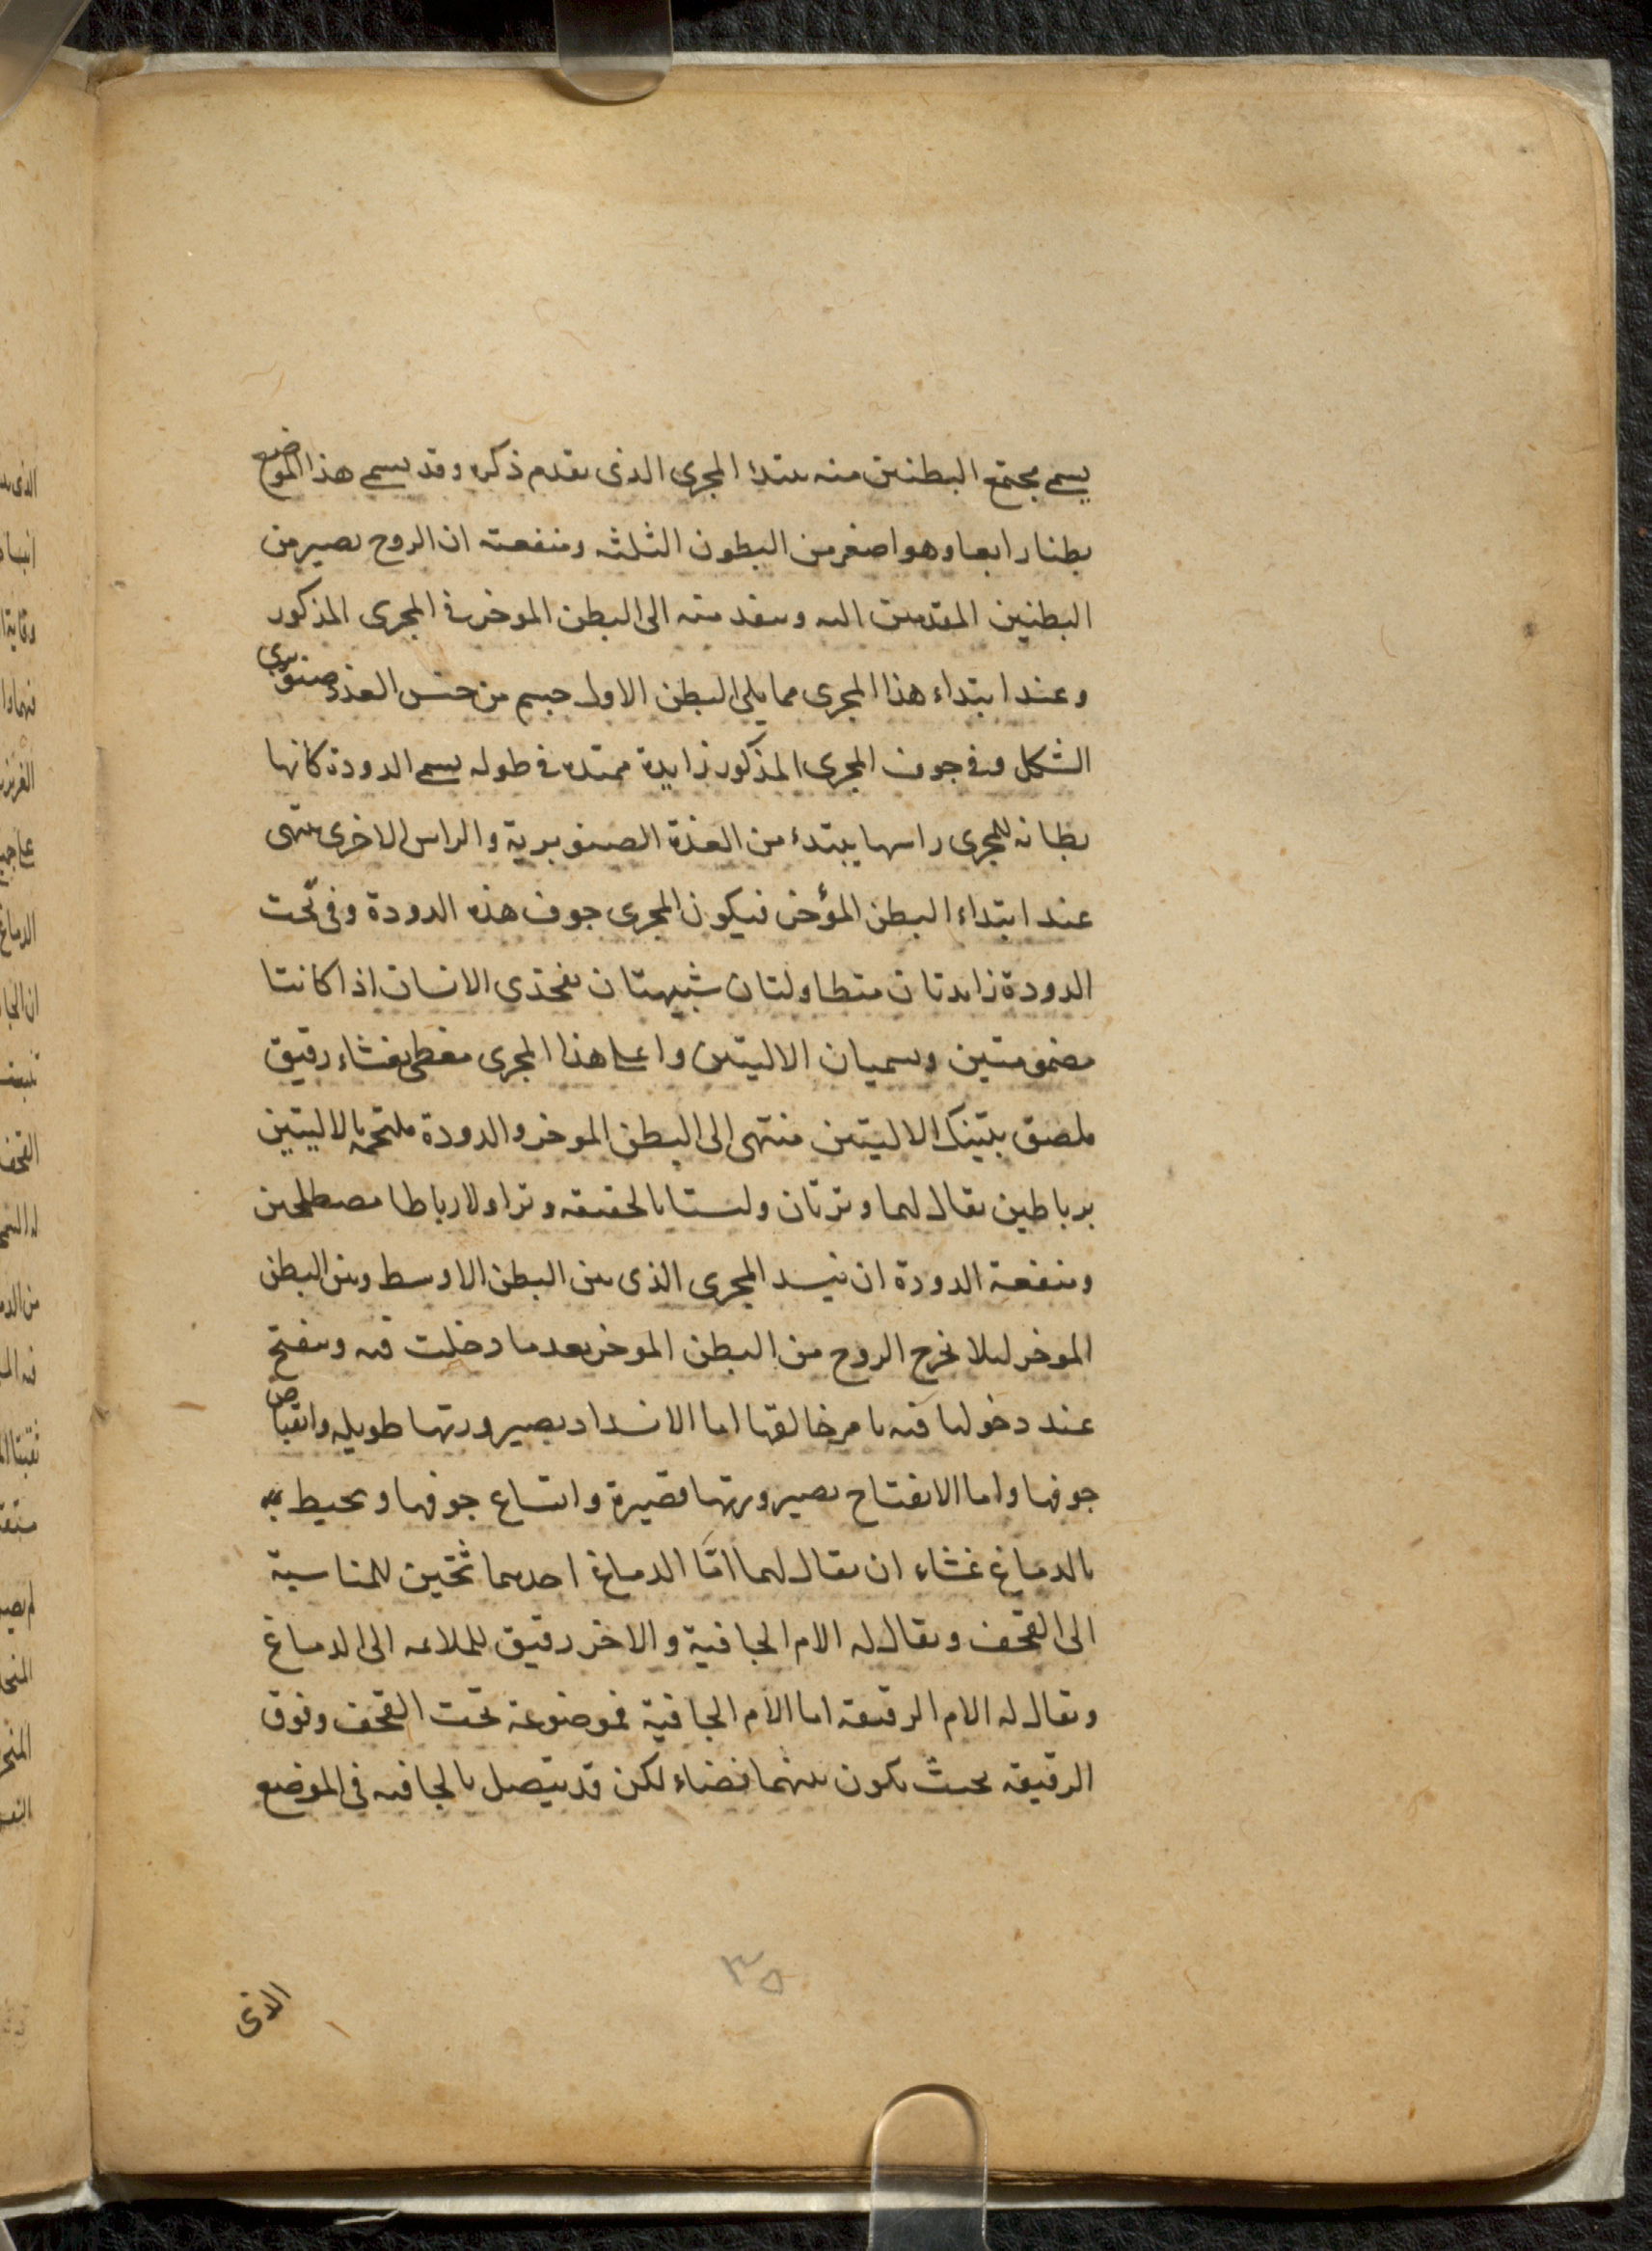 يسمى مجتمع البطنين منه يبتدأ المجرى الذى تقدم ذكره وقد يسمى هذا الموضع
بطنا رابعا وهو اصغر من البطون الثلثه ومنفعته ان الروح يصير من
البطنين المقدمين اليه وينفد منه الى البطن الموخر فى المجرى المذكور
وعند ابتداء هذا المجرى مما يلى البطن الاول جسم من جنس الغدد صنوبرى
الشكل وفى جوف المجرى المذكور زايدة ممتده فى طوله يسمى الدودة كانها
بطانه للمجرى راسها يبتدء من الغدة الصنوبرية والراس الاخرى ينتهى
عند ابتداء البطن المؤخر فيكون المجرى جوف هذه الدودة وفى تحت
الدودة زايدتان متطاولتان شبيهتان بفخذى الانسان اذا كانتا
مضمومتين ويسميان الاليتين واعلى هذا المجرى مغطى بغشاء رقيق
ملصق بتينك الاليتين منتهى الى البطن الموخر والدودة ملتحمه بالاليتين
برباطين يقال لهما وترتان وليستا بالحقيقه وترا ولا رباطا مصطلحين
ومنفعة الدودة ان يسد المجرى الذى بين البطن الاوسط وبين البطن
الموخر ليلا يخرج الروح من البطن الموخر بعد ما دخلت فيه وينفتح
عند دخولها فيه بامر خالقها اما الانسداد بصيرورتها طويله وانقباض
جوفها واما الانفتاح بصيرورتها قصيرة واتساع جوفها ويحيط به
بالدماغ غشاء ان يقال لهما امّا الدماغ احدهما ثخين للمناسبة
الى القحف ويقال له الام الجافية والاخر رقيق للملائمه الى الدماغ
ويقال له الام الرقيقه اما الام الجافية فموضوعة تحت القحف وفوق
الرقيقه بحيث يكون بينهما فضاء لكن قد يتصل بالجافيه فى الموضع
٣٥
الذى